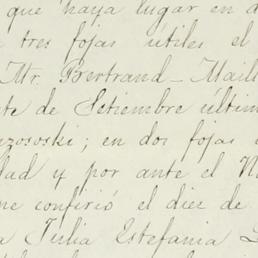 que haya lugar en d
tres fojas útiles el
Mr. Bertrand-Maill
te de Setiembre últim
zososki; en dos fojas
dad y por ante el N
me confirió el diez de
a Julia Estefania L